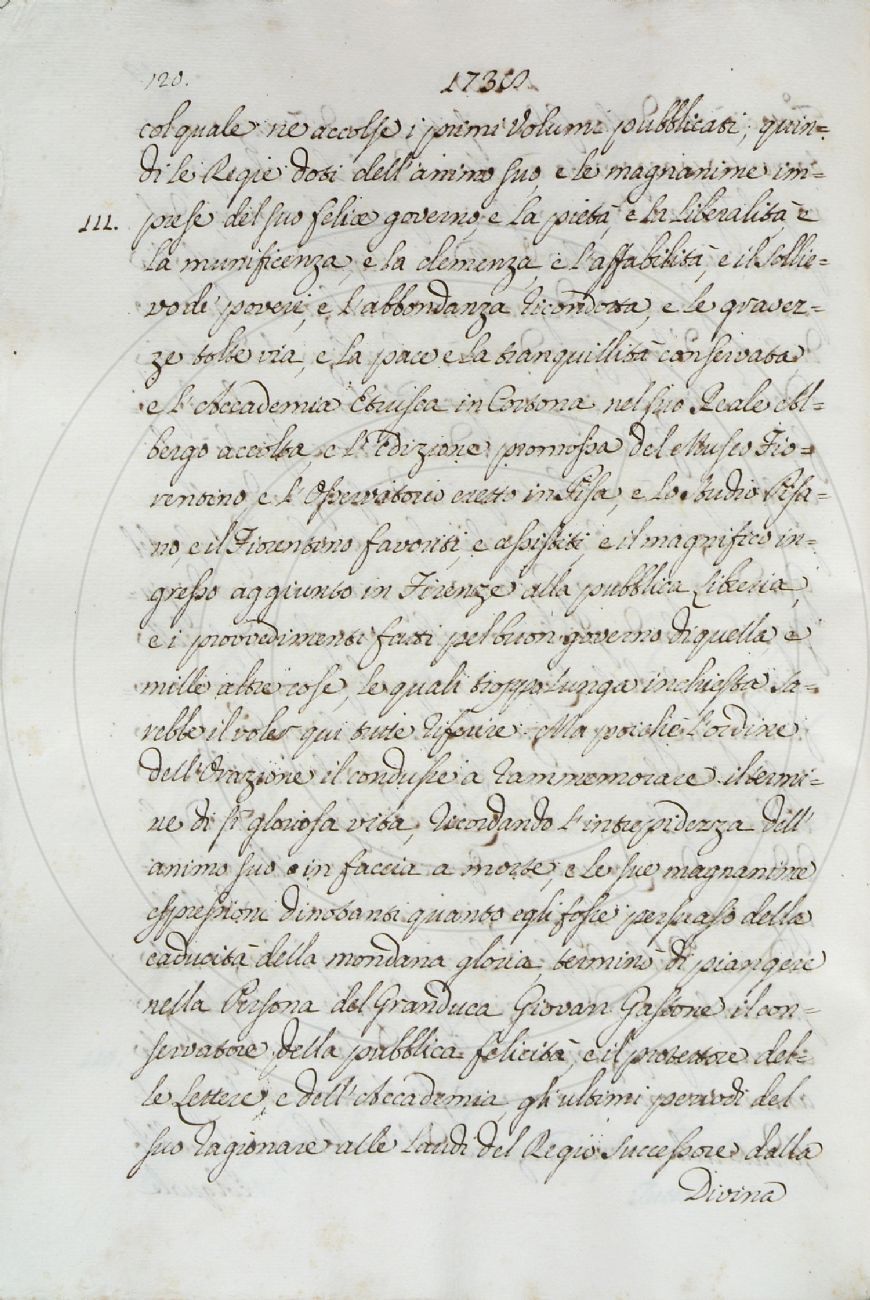 120. 1738.
col quale ne accolse i primi Volumi pubblicati; quin=
di le Regie doti dell'animo suo, e le magnanime im=
III. prese del suo felice governo, e la pietà, e la liberalità, e
la munificenza, e la clemenza, e l'affabilità, e il sollie=
vo de' poveri, e l'abbondanza ricondotta, e le gravez=
ze tolte via, e la pace e la tranquillità conservata
e l'Accademia Etrusca in Cortona nel suo Reale Al=
bergo accolta, e l'Edizione promossa del Museo Fio=
rentino e l'Osservatorio eretto in Pisa, e lo studio Pisa=
no, e il Fiorentino favoriti, e assistiti, e il magnifico in=
gresso aggiunto in Firenze alla pubblica Libreria,
e i provvedimenti fatti pel buon governo di quella e
mille altre cose, le quali troppo lunga inchiesta sa=
rebbe il voler qui tutte riferire. Ma poichè l'ordine
dell'Orazione il condusse a rammemorare il termi=
ne di sì gloriosa vita, ricordando l'intrepidezza dell'
animo suo in faccia a morte, e le sue magnanime
espressioni dinotanti quanto egli fosse persuaso della
caducità della mondana gloria, terminò di piangere
nella Persona del Granduca Giovan Gastone il con=
servatore della pubblica felicità, e il protettore del=
le Lettere, e dell'Accademia gli ultimi periodi del
suo ragionare alle laudi del Regio Successore dalla
Divina